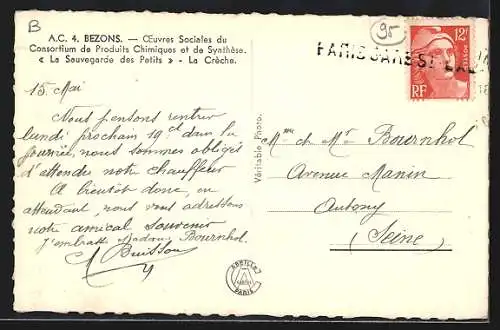 B
A.C. 4. BEZONS. — Œuvres Sociales du
Consortium de Produits Chimiques et de Synthèse.
« La Sauvegarde des Petits » - La Crèche.
95
PARIS GARE ST
12F
RF
15 Mai
Nous pensons rentrer
lundi prochain 19 ct dans la
journée, nous sommes obligés
d'attendre notre chauffeur
A bientôt donc, en
attendant, nous vous adressons
notre amical souvenir
J'embrasse Bournhol.
Buisson
Véritable Photo.
Mme et Mr Bournhol
Avenue Manin
Antony
(Seine)
ABEILLE
PARIS